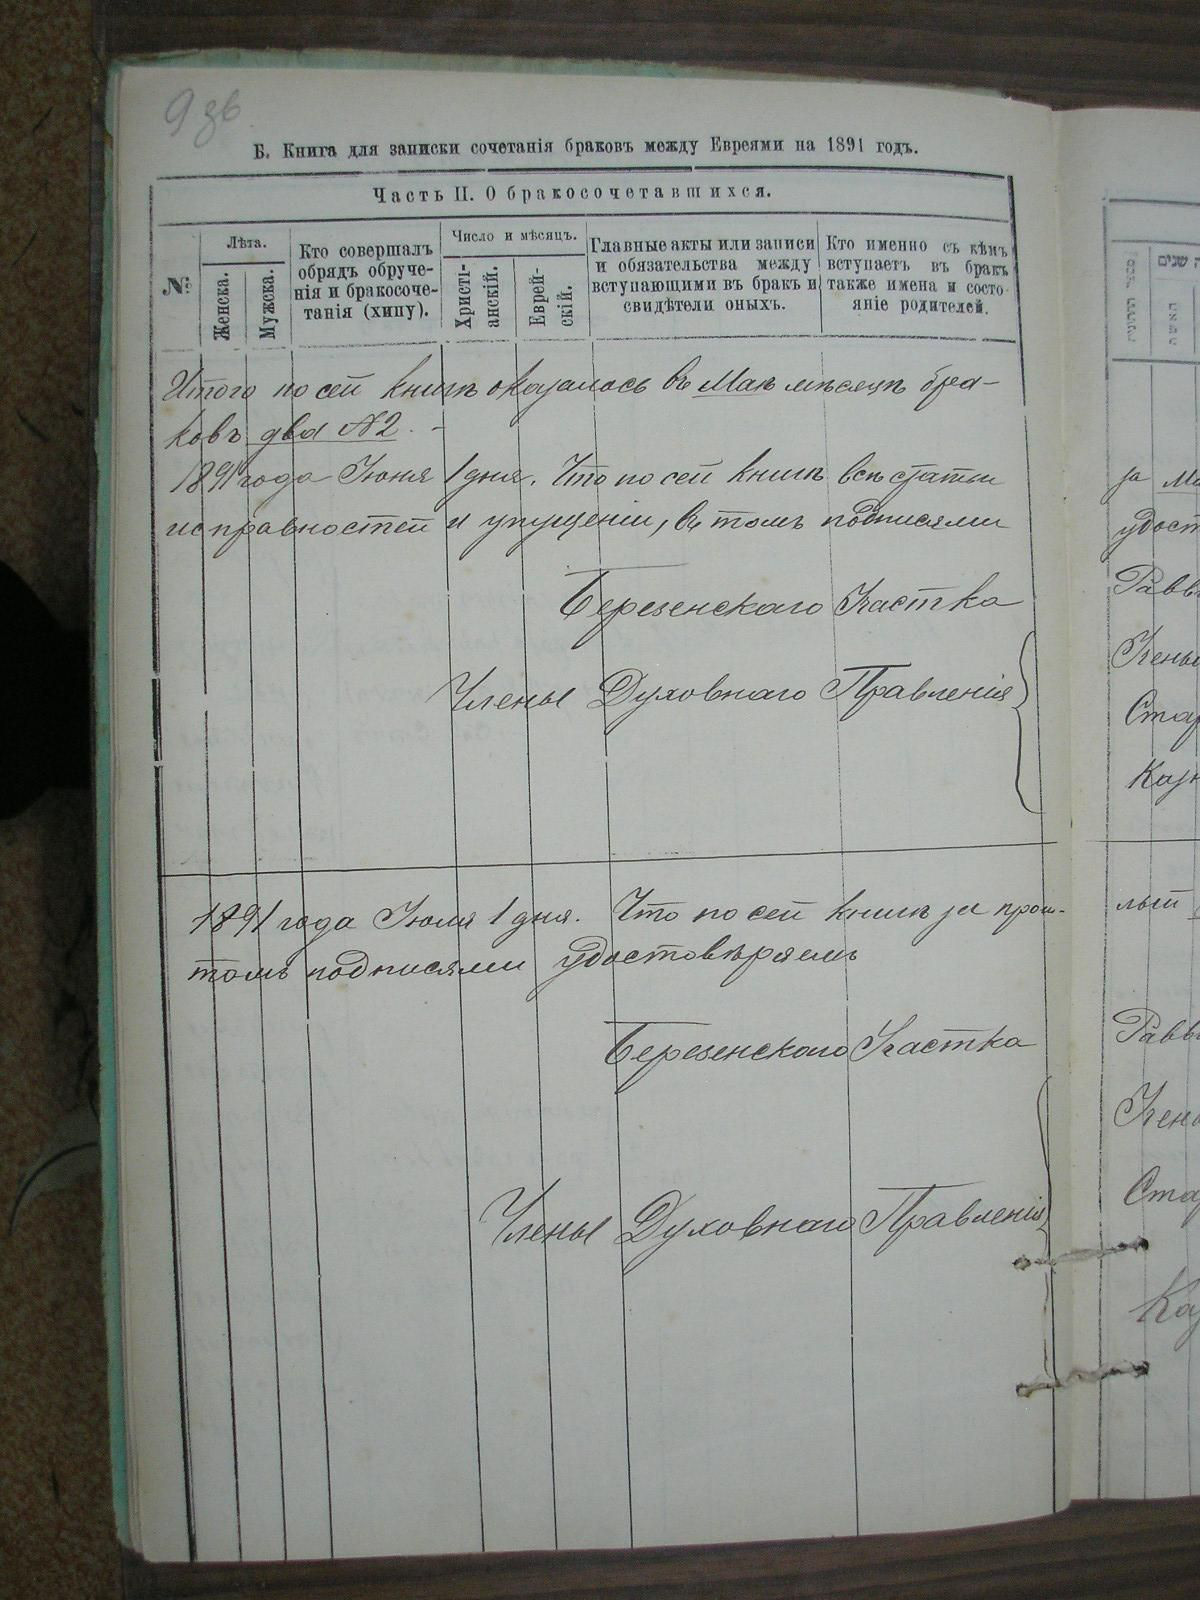 9 зв
Б. Книга для записки сочетанія браковъ между Евреями на 1891 годъ.
Часть II. О бракосочетавшихся.
№
Лѣта.
Женска.
Мужска.
Кто совершалъ
обрядъ обруче-
нія и бракосоче-
танія (хипу).
Число и мѣсяцъ.
Христі-
анскій.
Еврей-
скій.
Главные акты или записи
и обязательства между
вступающими въ бракъ и
свидѣтели оныхъ.
Кто именно съ кѣмъ
вступаетъ въ бракъ
также имена и состо-
яніе родителей.
Итого по сей книгѣ оказалось въ Маѣ мѣсяцѣ бра-
ковъ два №2. -
1891 года Іюня 1 дня. Что по сей книгѣ всѣ статьи
исправностей и упущеніи, въ томъ подписями
Березенскаго Участка
Члены Духовнаго Правленія
1891 года Іюля 1 дня. Что по сей книгѣ за прош-
томъ подписями удостовѣряемъ
Березенскаго Участка
Члены Духовнаго Правленія
שנים
за
удост
Равв
Учены
Стар
Каз
лый
Равв
Учен
Ста
Каз